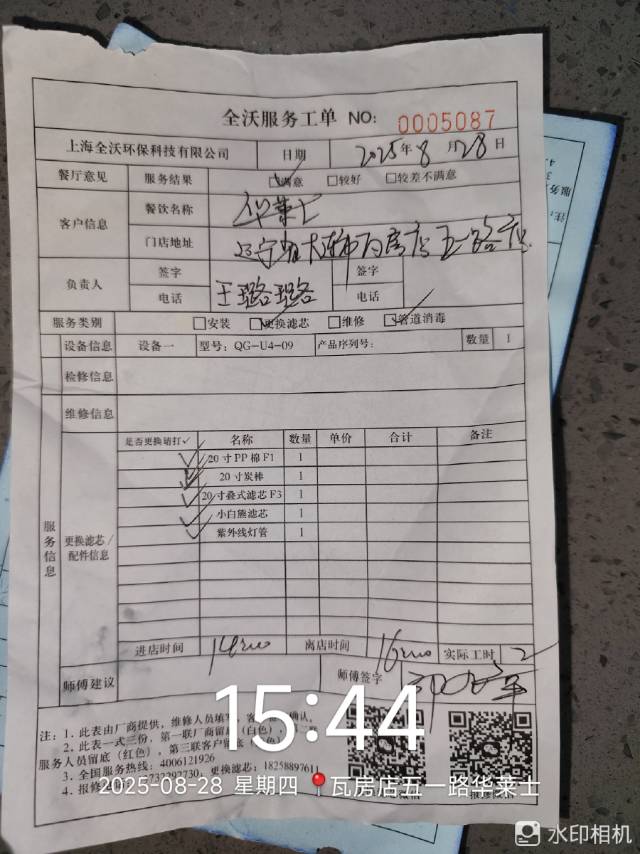 全沃服务工单 NO: 0005087
上海全沃环保科技有限公司 日期 2025年8月28日
餐厅意见 服务结果 ☑满意 □较好 □较差不满意
客户信息 餐饮名称 华莱士
门店地址 辽宁省大连市瓦房店五一路店
负责人 签字 王璐璐 签字
电话 电话
服务类别 □安装 ☑更换滤芯 □维修 ☑管道消毒
设备信息 设备一 型号: QG-U4-09 产品序列号: 数量 1
检修信息
维修信息
服务信息
更换滤芯/配件信息
是否更换请打✓ 名称 数量 单价 合计 备注
✓ 20寸PP棉F1 1
✓ 20寸炭棒 1
✓ 20寸叠式滤芯F3 1
✓ 小白熊滤芯 1
✓ 紫外线灯管 1
进店时间 14:00 离店时间 16:00 实际工时 2
师傅建议 师傅签字
15:44
注: 1. 此表由厂商提供, 维修人员填写, 客 确认。
2. 此表一式三份, 第一联厂商留底(白色)
服务人员留底(红色), 第三联客户留底
3. 全国服务热线: 4006121926
4. 报修 732292730; 更换滤芯: 18258897611
2025-08-28 星期四 瓦房店五一路华莱士
水印相机